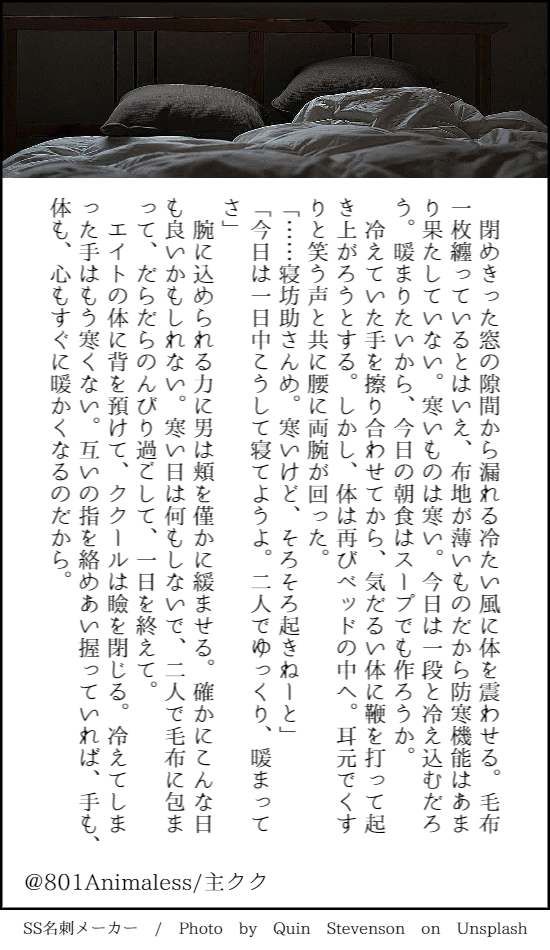 閉めきった窓の隙間から漏れる冷たい風に体を震わせる。毛布
一枚纏っているとはいえ、布地が薄いものだから防寒機能はあま
り果たしていない。寒いものは寒い。今日は一段と冷え込むだろ
う。暖まりたいから、今日の朝食はスープでも作ろうか。
　冷えていた手を擦り合わせてから、気だるい体に鞭を打って起
き上がろうとする。しかし、体は再びベッドの中へ。耳元でくす
りと笑う声と共に腰に両腕が回った。
「……寝坊助さんめ。寒いけど、そろそろ起きねーと」
「今日は一日中こうして寝てようよ。二人でゆっくり、暖まって
さ」
　腕に込められる力に男は頬を僅かに緩ませる。確かにこんな日
も良いかもしれない。寒い日は何もしないで、二人で毛布に包ま
って、だらだらのんびり過ごして、一日を終えて。
　エイトの体に背を預けて、ククールは瞼を閉じる。冷えてしま
った手はもう寒くない。互いの指を絡めあい握っていれば、手も、
体も、心もすぐに暖かくなるのだから。
@801Animaless/主クク
SS名刺メーカー　/　Photo　by　Quin　Stevenson　on　Unsplash